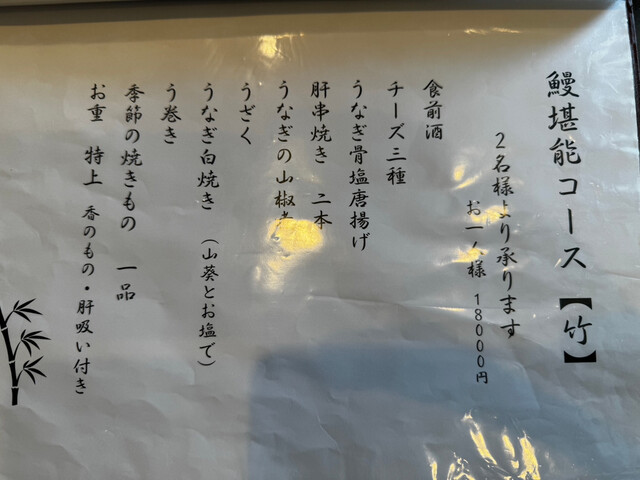 鰻堪能コース【竹】
2名様より承ります
お一人様 18000円
食前酒
チーズ三種
うなぎ骨塩唐揚げ
肝串焼き 二本
うなぎの山椒
うざく
うなぎ白焼き (山葵とお塩で)
う巻き
季節の焼きもの 一品
お重 特上 香のもの・肝吸い付き